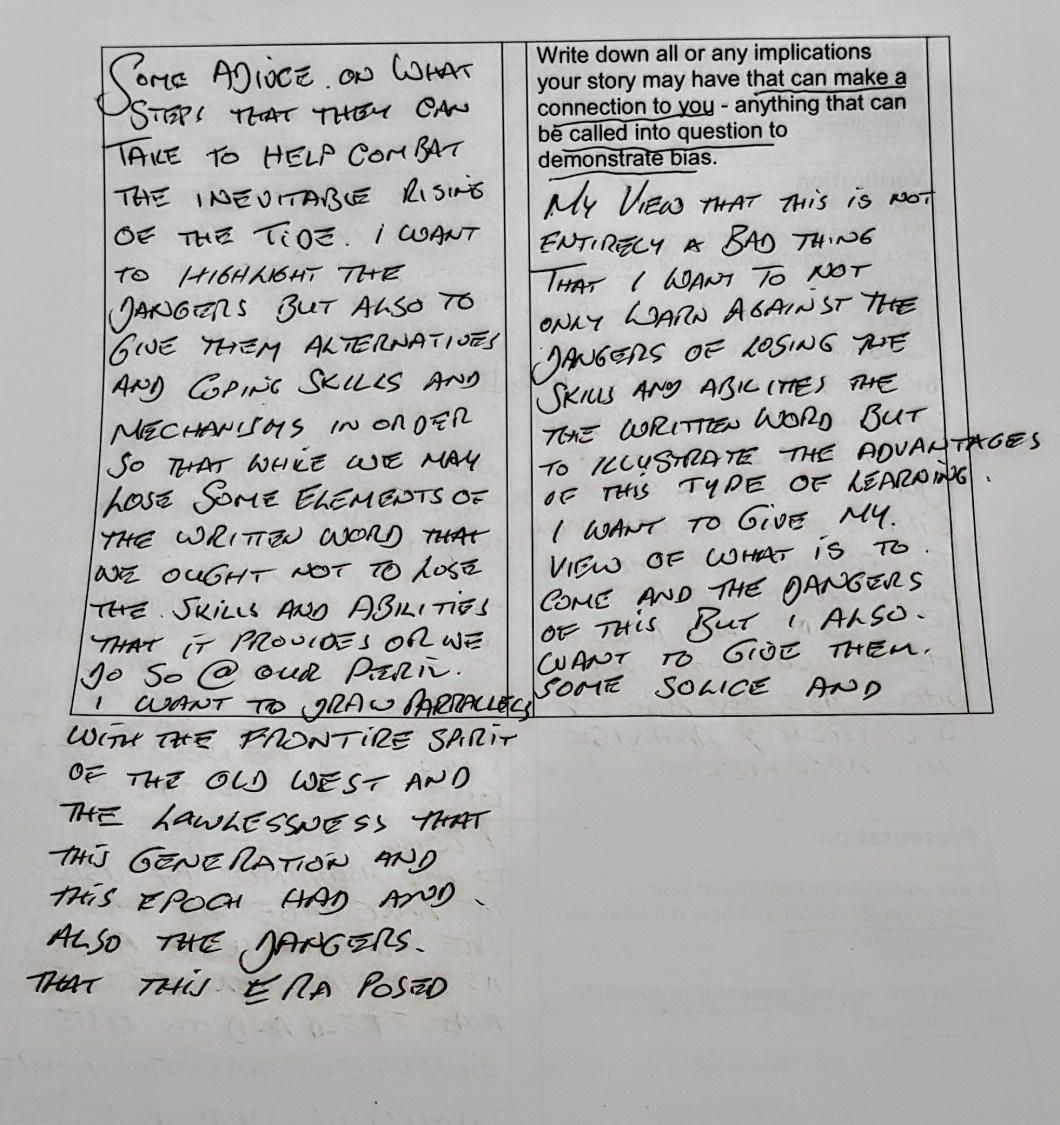 SOME ADIVCE. ON WHAT
STEPS THAT THEY CAN
TAKE TO HELP COMBAT
THE INEVITABLE RISING
OF THE TIDE. I WANT
TO HIGHLIGHT THE
DANGERS BUT ALSO TO
GIVE THEM ALTERNATIVES
AND COPING SKILLS AND
MECHANISMS IN ORDER
SO THAT WHILE WE MAY
LOSE SOME ELEMENTS OF
THE WRITTEN WORD THAT
WE OUGHT NOT TO LOSE
THE. SKILLS AND ABILITIES
THAT IT PROVIDES OR WE
DO SO @ OUR PERIL.
I WANT TO DRAW PARRALLELS
WITH THE FRONTIRE SPIRIT
OF THE OLD WEST AND
THE LAWLESSNESS THAT
THIS GENERATION AND
THIS EPOCH HAD AND
ALSO THE DANGERS.
THAT THIS ERA POSED
Write down all or any implications
your story may have that can make a
connection to you - anything that can
be called into question to
demonstrate bias.
MY VIEW THAT THIS IS NOT
ENTIRELY A BAD THING
THAT I WANT TO NOT
ONLY WARN AGAINST THE
DANGERS OF LOSING THE
SKILLS AND ABILITIES THE
THE WRITTEN WORD BUT
TO ILLUSTRATE THE ADVANTAGES
OF THIS TYPE OF LEARNING.
I WANT TO GIVE MY.
VIEW OF WHAT IS TO.
COME AND THE DANGERS
OF THIS BUT I ALSO.
WANT TO GIVE THEM.
SOME SOLICE AND